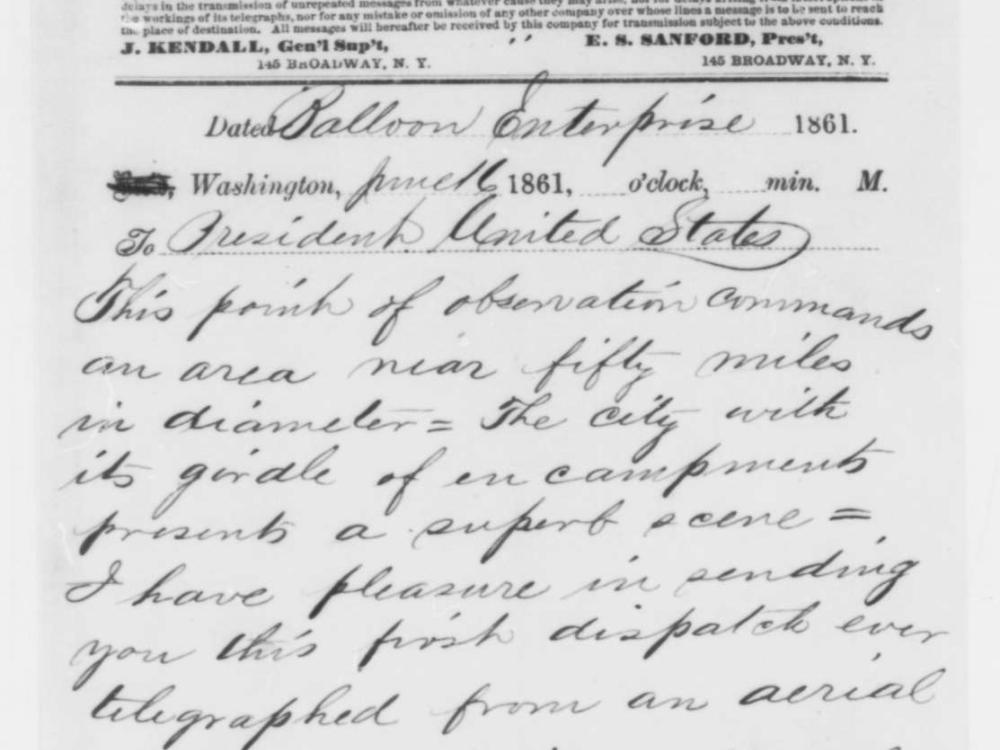 delays in the transmission of unrepeated messages from whatever cause they may arise, nor for delays arising from
the workings of its telegraphs, nor for any mistake or omission of any other company over whose lines a message is to be sent to reach
the place of destination. All messages will hereafter be received by this company for transmission subject to the above conditions.
J. KENDALL, Gen'l Sup't,
E. S. SANFORD, Pres't,
145 BROADWAY, N. Y.
145 BROADWAY, N. Y.
Dated Balloon Enterprise 1861.
Washington, June 16 1861, o'clock, min. M.
To President United States
This point of observation commands
an area near fifty miles
in diameter = The city with
its girdle of encampments
presents a superb scene =
I have pleasure in sending
you this first dispatch ever
telegraphed from an aerial